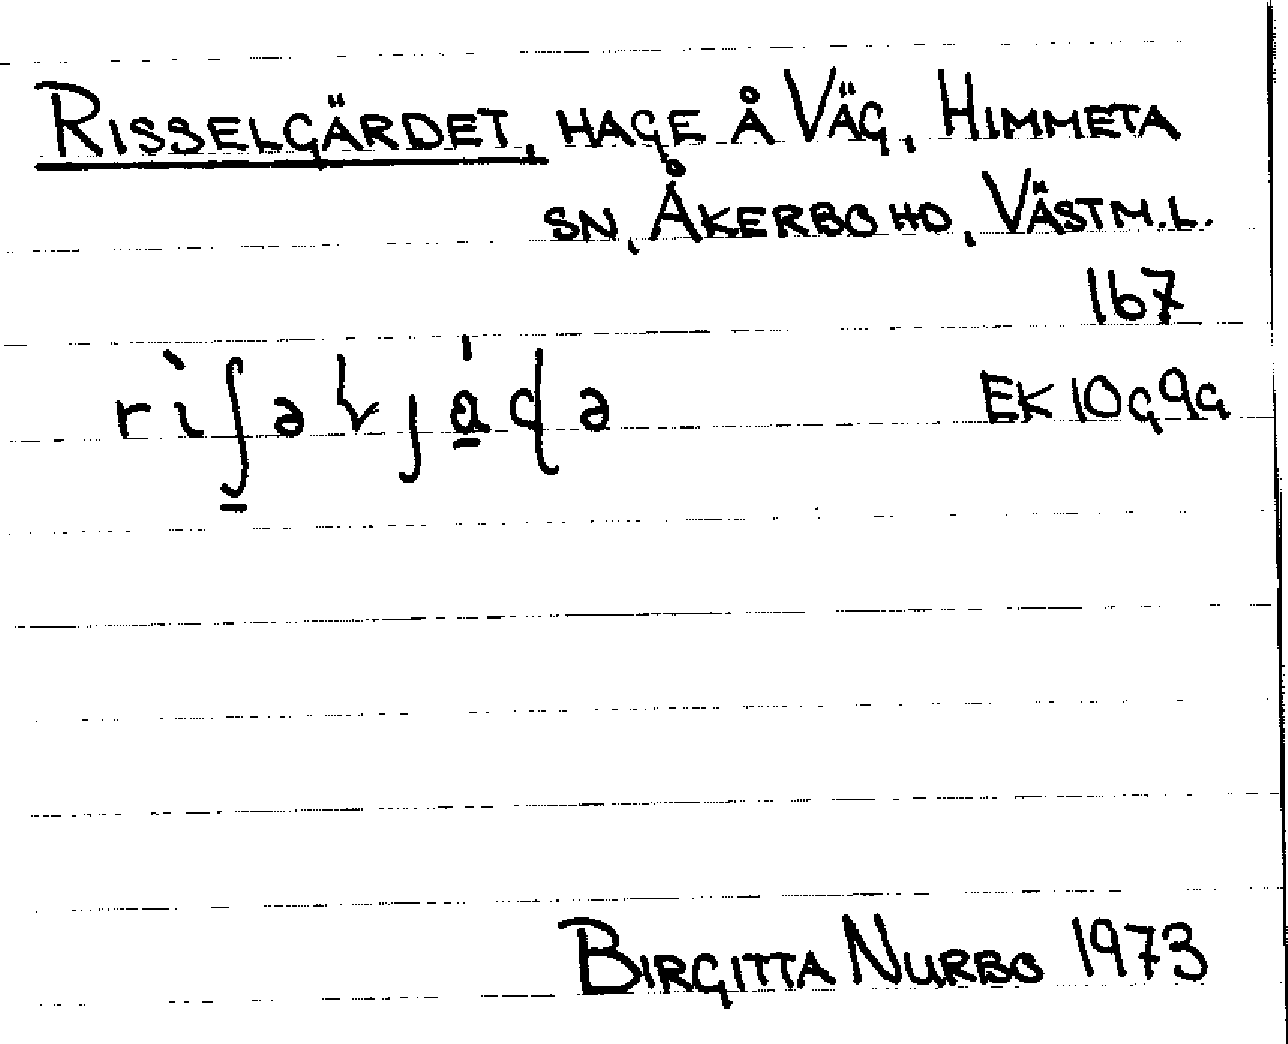 RISSELGÄRDET, HAGE Å VÄG, HIMMETA
SN, ÅKERBO HD, VÄSTM.L.
167
EK 10G9G
BIRGITTA NURBO 1973